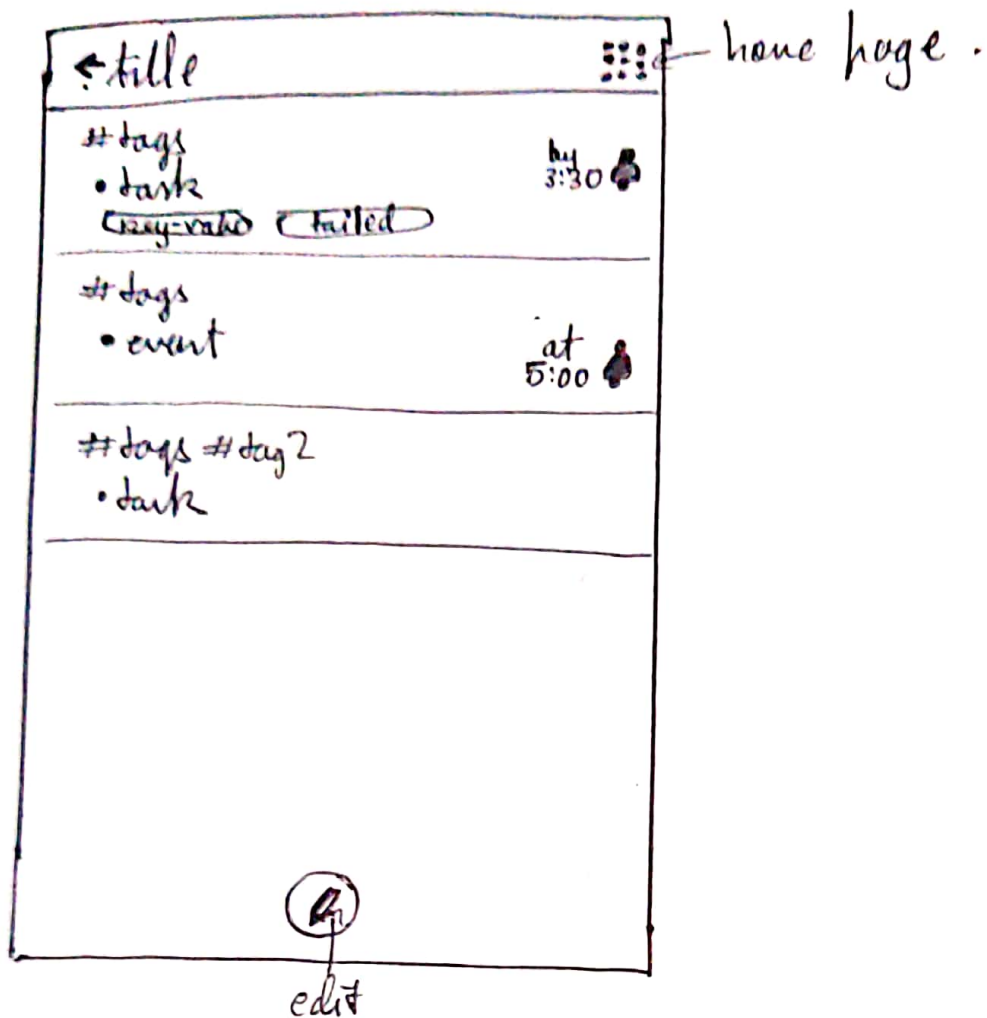 ← title
home page.
#tags
• task
by
3:30
key-value failed
#tags
• event
at
5:00
#tags #tag2
• task
edit